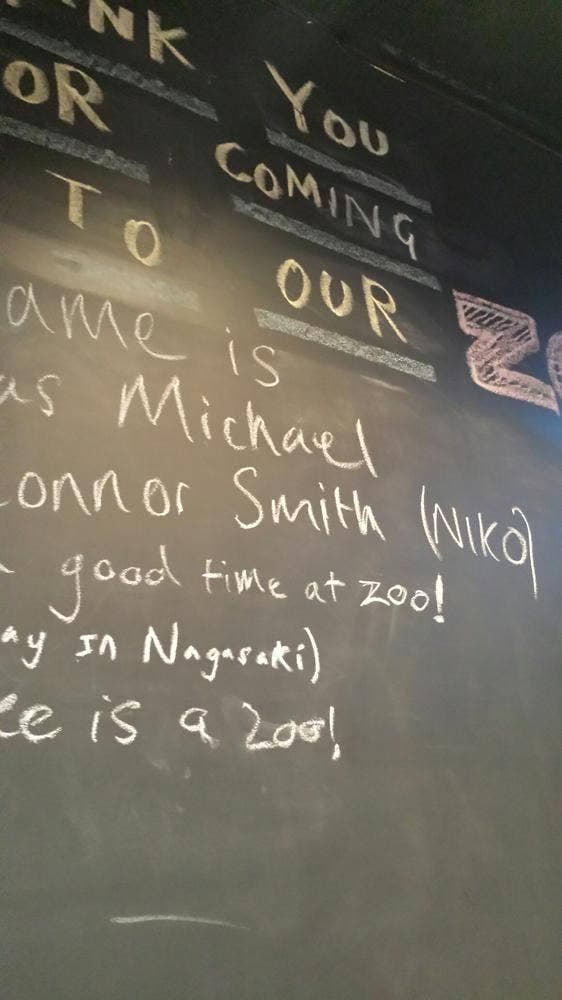 ANK YOU
OR COMING
TO OUR ZO
ame is
as Michael
onnor Smith (NIKO)
good time at zoo!
ay in Nagasaki)
ce is a zoo!